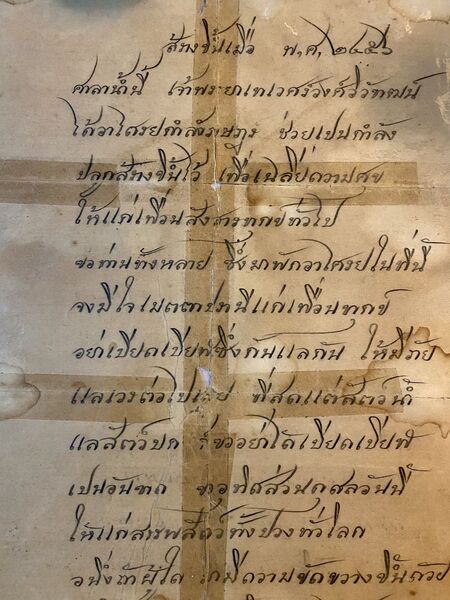 สร้างขึ้นเมื่อ พ,ศ, ๒๔๕๖
ศาลาน้ำนี้ เจ้าพระยาเทเวศรวงศ์วิวัฒน์
ได้อาไศรย ช่วยเปนกำลัง
ปลูกสร้างขึ้นไว้ เพื่อเฉลี่ยความศุข
ให้แก่เพื่อนสงสารทุกข์ทั่วไป
ขอท่านทั้งหลาย ซึ่งมาพักอาไศรยในที่นี้
จงมีใจเมตตาปรานีแก่เพื่อนทุกข์
อย่าเบียดเบียฬซึ่งกันแลกัน ให้มีภัย
แลเวรต่อไปเลย ที่สุดแต่สัตว์น้ำ
แลสัตว์บก ก็ขออย่าได้เบียดเบียฬ
เปนอันขาด ขออุทิศส่วนกุศลอันนี้
ให้แก่สรรพสัตว์ทั้งปวงทั่วโลก
อนึ่งถ้าผู้ใด เกิดมีความขัดขวางขึ้นด้วย